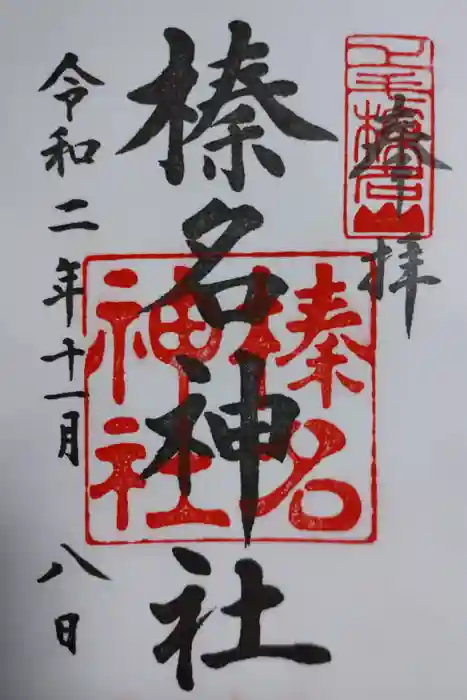 奉拝
上毛榛名山
榛名神社
榛名神社
令和二年十一月八日